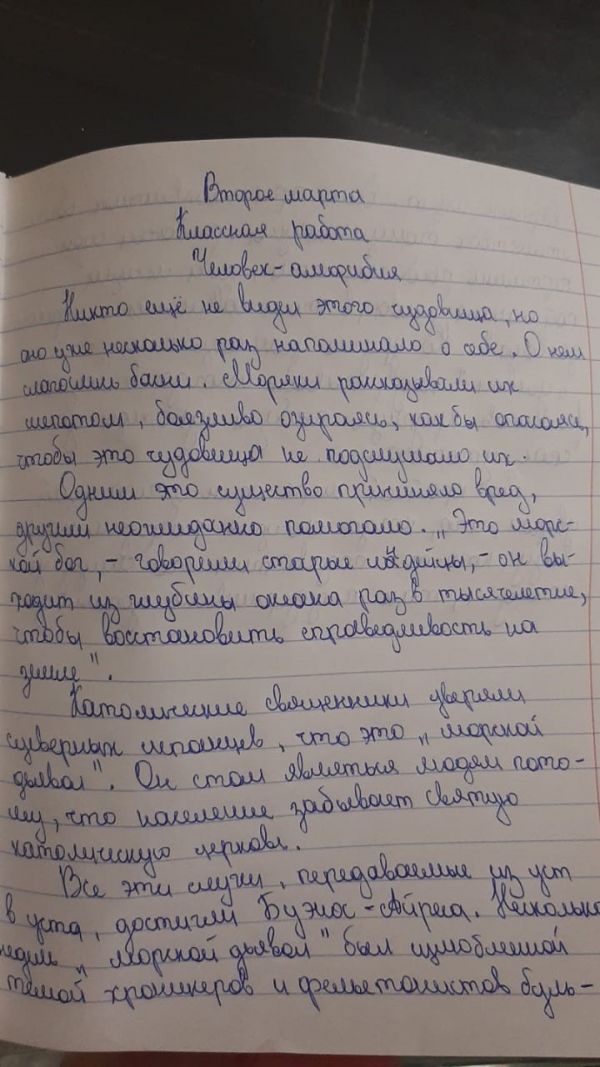 Второе марта
Классная работа
Человек-амфибия
Никто ещё не видел этого чудовища, но
оно уже несколько раз напоминало о себе. О нём
слагались басни. Моряки рассказывали их
шепотом, боязливо озираясь, как бы опасаясь,
чтобы это чудовища не подслушало их.
Одним это существо причиняло вред,
другим неожиданно помогало. „Это морс-
кой бог, – говорили старые индейцы, – он вы-
ходит из глубины океана раз в тысячелетие,
чтобы восстановить справедливость на
земле".
Католические священники уверяли
суеверных испанцев, что это „морской
дьявол". Он стал являться людям пото-
му, что население забывает святую
католическую церковь.
Все эти слухи, передаваемые из уст
в уста, достигли Буэнос-Айреса. Несколько
недель „морской дьявол" был излюбленной
темой хроникеров и фельетонистов буль-